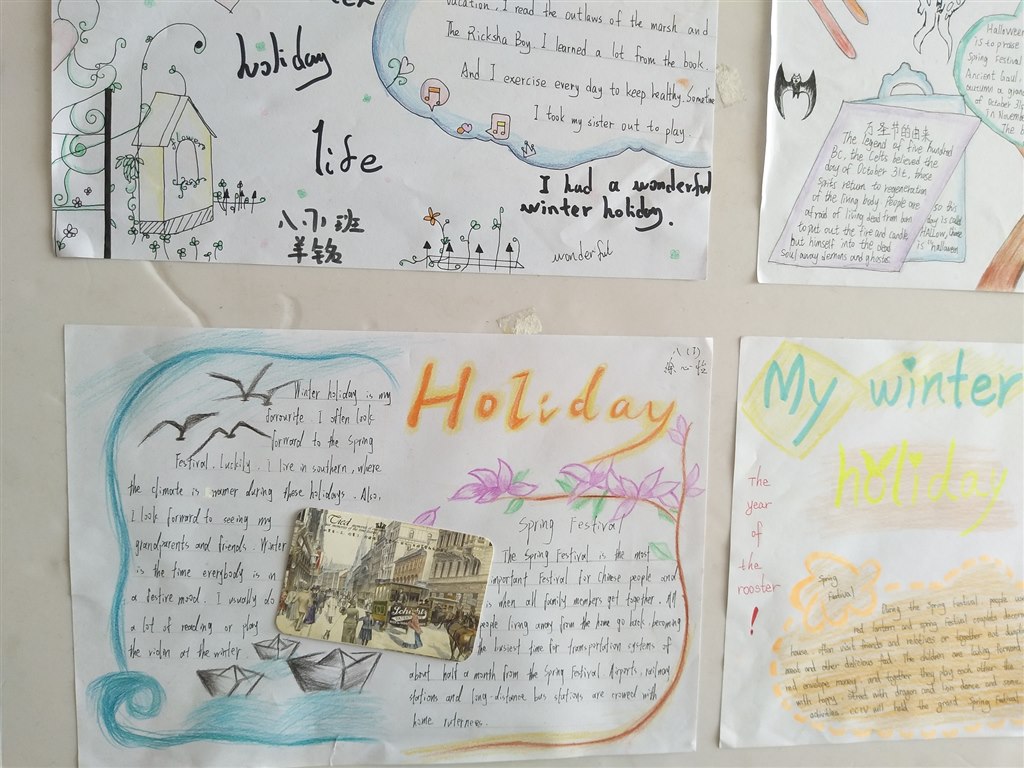 holiday
life
八.7)班
vacation, I read the outlaws of the marsh and
The Ricksha Boy. I learned a lot from the book.
And I exercise every day to keep healthy. Sometime
I took my sister out to play.
I had a wonderful
winter holiday.
wonderful
flowers
万圣节的由来
The legend of five hundred
BC, the Celts believed the
day of October 31t, those
spirts return to
of the living body. People are
afraid of living dead from
to put out the fire and candle
but himself into the dead
soul away demons and ghostes.
so this
day is
HALLOW,
is "halloween
Halloween
is to praise
Spring Festival
Ancient Gaul,
autumn a
of October 31
in November
Holiday
八(1)
Winter holiday is my
favourite. I often look
forward to the spring
Festival. Luckily. I live in southern, where
the climate is warmer during these holidays. Also,
I look forward to seeing my
grandparents and friends. Winter
is the time everybody is in
a festive mood. I usually do
a lot of reading or play
the violin at the winter
Spring Festival
The Spring Festival is the most
important Festival for Chinese people and
is when all family members get together. All
people living away from the home go back, becoming
the busiest time for transportation systems of
about half a month from the Spring Festival. Airports, railway
stations and long-distance bus stations are crowed with
home ruterness.
My winter
holiday
The
year
of
the
rooster
!
Spring
Festival
During the Spring Festival, people
red lantern and spring festival couplets
house, often visit friends and relatives or together eat
meat and other delicious food. The children are looking forward
red envelope money and together they play each other the
with happy. Street with dragon and lion dance and some
activities. CCTV will hold the grand Spring Festival